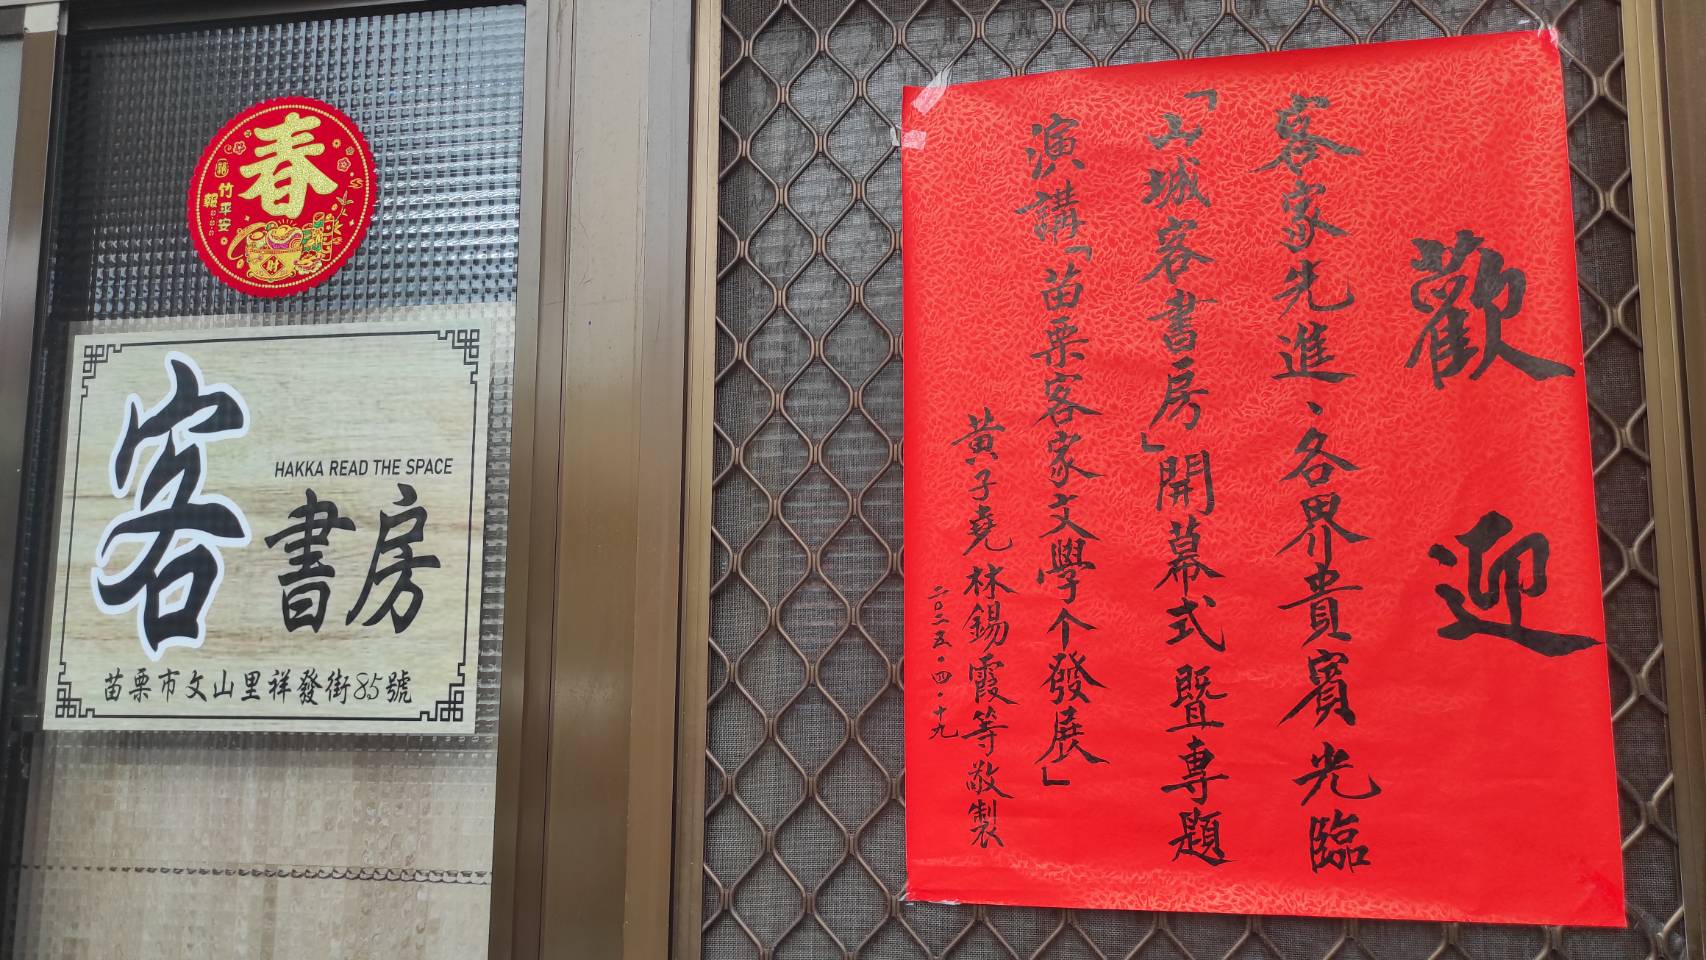 春
竹平安
報
財
客書房
HAKKA READ THE SPACE
苗栗市文山里祥發街85號
歡迎
客家先進、各界貴賓光臨
「山城客書房」開幕式暨專題
演講「苗栗客家文學个發展」
黄子堯林錫霞等敬製
二〇二五.四.十九